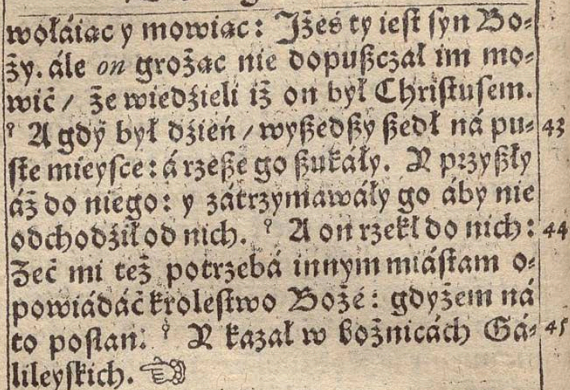 wołáiąc y mowiąc: Jżeś ty iest syn Bo-
ży. ále on grożąc nie dopußczał im mo-
wić / że wiedźieli iż on był Christusem.
A gdy był dźień / wyßedßy ßedł ná pu- 43
ste mieysce: á rzeße go ßukáły. Y przyßły
áż do niego: y zátrzymawáły go áby nie
odchodźił od nich. A on rzekł do nich: 44
Żeć mi też potrzebá innym miástam o-
powiádáć krolestwo Bożé: gdyżem ná
to posłan. Y kazał w bożnicách Gá- 45
lileyskich. ☜